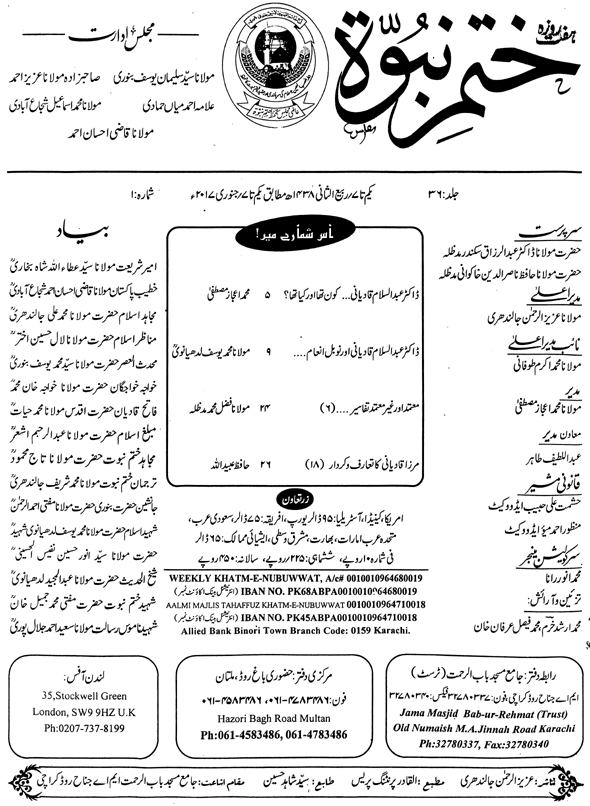 ہفت روزہ
ختم نبوۃ
مجلس ادارت
مولانا سید سلیمان یوسف بنوری صاحبزادہ مولانا عزیز احمد
علامہ احمد میاں حمادی مولانا محمد اسماعیل شجاع آبادی
مولانا قاضی احسان احمد
جلد: ۳۶ یکم تا ۷؍ ربیع الثانی ۱۴۳۸ھ مطابق یکم تا ۷؍ جنوری ۲۰۱۷ء شمارہ: ۱
سرپرست
حضرت مولانا ڈاکٹر عبدالرزاق سکندر مدظلہ
حضرت مولانا حافظ ناصر الدین خاکوانی مدظلہ
مدیر اعلیٰ
مولانا عزیز الرحمٰن جالندھری
نائب مدیر اعلیٰ
مولانا محمد اکرم طوفانی
مدیر
مولانا محمد اعجاز مصطفیٰ
معاون مدیر
عبداللطیف طاہر
قانونی مشیر
حشمت علی حبیب ایڈووکیٹ
منظور احمد میو ایڈووکیٹ
سرکولیشن منیجر
محمد انور رانا
تزئین و آرائش:
محمد ارشد خرم، محمد فیصل عرفان خان
اس شمارے میں!
ڈاکٹر عبدالسلام قادیانی... کون تھا اور کیا تھا؟ ۵ محمد اعجاز مصطفیٰ
ڈاکٹر عبدالسلام قادیانی اور نوبل انعام.... ۹ مولانا محمد یوسف لدھیانویؒ
معتمد اور غیر معتمد تفاسیر....(۶) ۲۴ مولانا فضل محمد مدظلہ
مرزا قادیانی کا تعارف و کردار (۱۸) ۲۶ حافظ عبیداللہ
زرتعاون
امریکا، کینیڈا، آسٹریلیا: ۹۵ ڈالر یورپ، افریقہ: ۷۵ ڈالر، سعودی عرب،
متحدہ عرب امارات، بھارت، مشرق وسطیٰ، ایشیائی ممالک: ۶۵ ڈالر
فی شمارہ ۱۰ روپے، ششماہی: ۲۲۵ روپے، سالانہ: ۴۵۰ روپے
WEEKLY KHATM-E-NUBUWWAT, A/c# 0010010964680019
IBAN NO. PK68ABPA0010010964680019 (انٹرنیشنل بینک اکاؤنٹ نمبر)
AALMI MAJLIS TAHAFFUZ KHATM-E-NUBUWWAT 0010010964710018
IBAN NO. PK45ABPA0010010964710018 (انٹرنیشنل بینک اکاؤنٹ نمبر)
Allied Bank Binori Town Branch Code: 0159 Karachi.
بیاد
امیر شریعت مولانا سید عطاء اللہ شاہ بخاریؒ
خطیب پاکستان مولانا قاضی احسان احمد شجاع آبادیؒ
مجاہد اسلام حضرت مولانا محمد علی جالندھریؒ
مناظر اسلام حضرت مولانا لال حسین اخترؒ
محدث العصر حضرت مولانا سید محمد یوسف بنوریؒ
خواجہ خواجگان حضرت مولانا خواجہ خان محمدؒ
فاتح قادیان حضرت اقدس مولانا محمد حیاتؒ
مبلغ اسلام حضرت مولانا عبدالرحیم اشعرؒ
مجاہد ختم نبوت حضرت مولانا تاج محمودؒ
ترجمان ختم نبوت مولانا محمد شریف جالندھریؒ
جانشین حضرت بنوری حضرت مولانا مفتی احمد الرحمٰنؒ
شہید اسلام حضرت مولانا محمد یوسف لدھیانوی شہیدؒ
حضرت مولانا سید انور حسین نفیس الحسینیؒ
شیخ الحدیث حضرت مولانا عبدالمجید لدھیانویؒ
شہید ختم نبوت حضرت مفتی محمد جمیل خانؒ
شہید ناموس رسالت مولانا سعید احمد جلال پوریؒ
رابطہ دفتر: جامع مسجد باب الرحمت (ٹرسٹ)
ایم اے جناح روڈ کراچی، فون: ۳۲۷۸۰۳۳۷ فیکس: ۳۲۷۸۰۳۴۰
Jama Masjid Bab-ur-Rehmat (Trust)
Old Numaish M.A.Jinnah Road Karachi
Ph:32780337, Fax:32780340
مرکزی دفتر: حضوری باغ روڈ، ملتان
فون: ۰۶۱-۴۷۸۳۴۸۶، ۰۶۱-۴۵۸۳۴۸۶
Hazori Bagh Road Multan
Ph:061-4583486, 061-4783486
لندن آفس:
35,Stockwell Green
London, SW9 9HZ U.K
Ph:0207-737-8199
ناشر: عزیز الرحمٰن جالندھری مطبع: القادر پرنٹنگ پریس طابع: سید شاہد حسین مقام اشاعت: جامع مسجد باب الرحمت ایم اے جناح روڈ کراچی